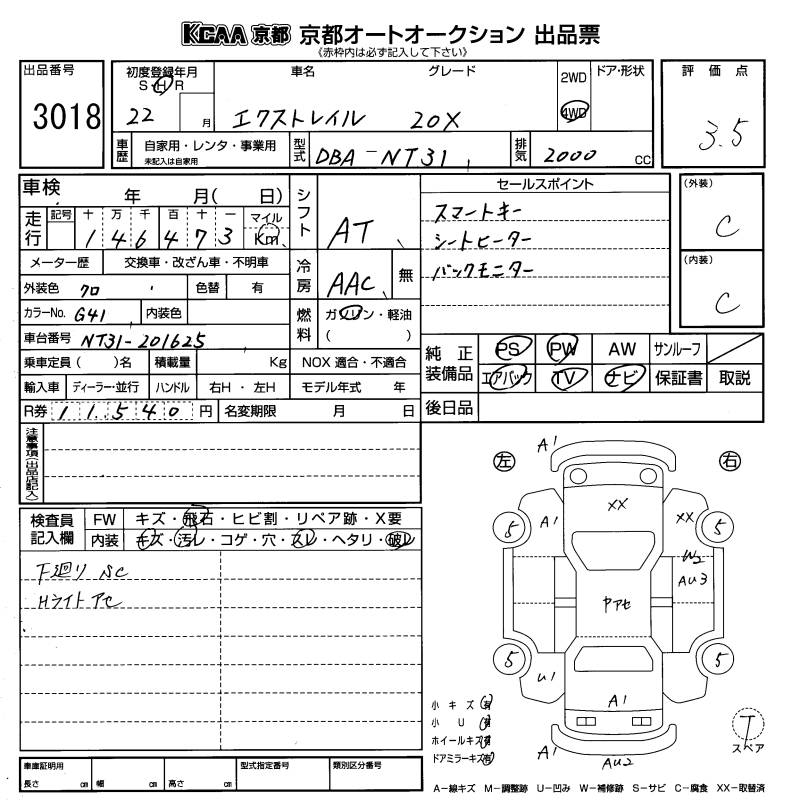 KCAA 京都 京都オートオークション 出品票
《赤枠内は必ず記入して下さい》
出品番号
3018
初度登録年月
S・H・R
22 月
車名 グレード
エクストレイル 20X
2WD
4WD
ドア・形状
評価点
3.5
車歴
自家用・レンタ・事業用
未記入は自家用
型式
DBA-NT31
排気
2000 CC
車検 年 月( 日)
走行
記号 十 万 千 百 十 一 マイル
1 4 6 4 7 3 Km
シフト
AT
セールスポイント
スマートキー
シートヒーター
バックモニター
(外装)
C
(内装)
C
メーター歴 交換車・改ざん車・不明車
冷房
AAC 無
外装色 クロ 色替 有
カラーNo. G41 内装色
燃料
ガソリン・軽油
( )
車台番号 NT31-201625
乗車定員( )名 積載量 Kg NOX 適合・不適合
輸入車 ディーラー・並行 ハンドル 右H・左H モデル年式 年
R券 1 1 5 4 0 円 名変期限 月 日
純正装備品
PS PW AW サンルーフ
エアバック TV ナビ 保証書 取説
後日品
注意事項(出品店記入)
検査員記入欄
FW キズ・飛石・ヒビ割・リペア跡・X要
内装 キズ・汚レ・コゲ・穴・スレ・ヘタリ・破レ
下廻り SC
Hライトアセ
左 右
A1
XX
A1 XX
5 5
W2
AU3
ヤアセ
5 5
U1
A1
A1
AU2
小キズ(有)
小U(有)
ホイールキズ(有)
ドアミラーキズ(有)
T
スペア
車庫証明用
長さ cm 幅 cm 高さ cm
型式指定番号
類別区分番号
A−線キズ M−調整跡 U−凹み W−補修跡 S−サビ C−腐食 XX−取替済